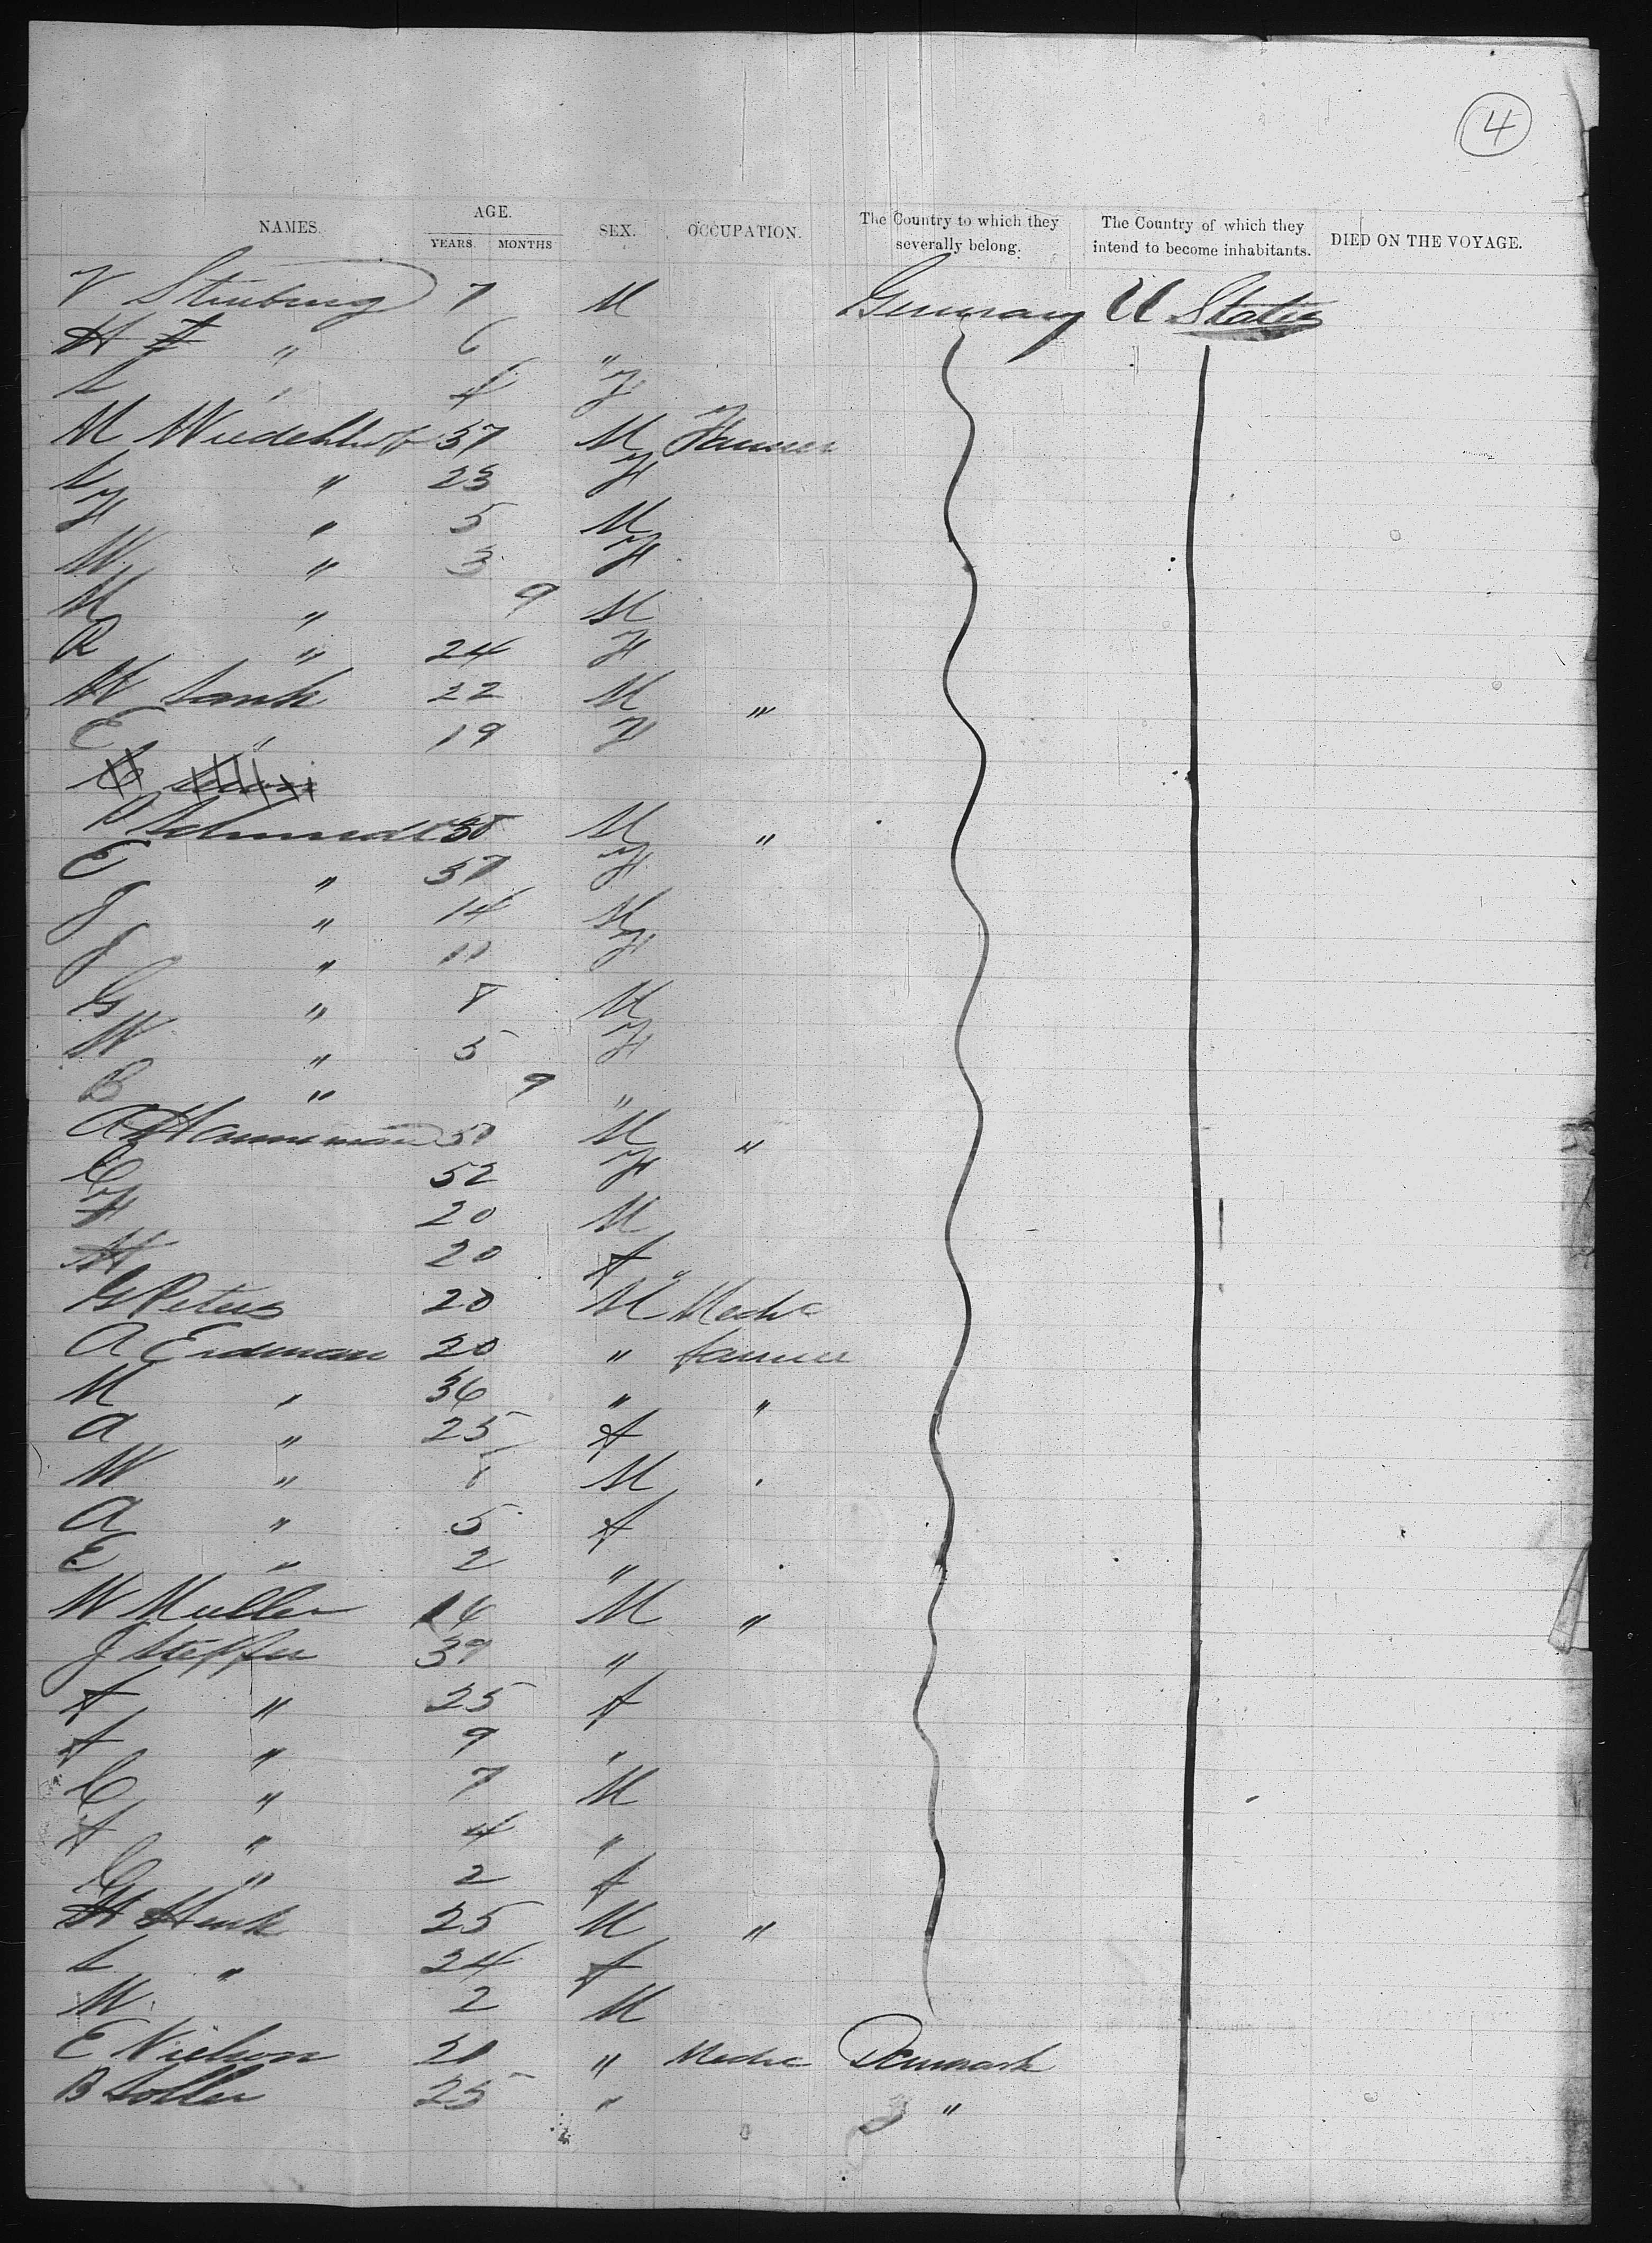 4
NAMES. AGE. YEARS. MONTHS SEX. OCCUPATION. The Country to which they severally belong. The Country of which they intend to become inhabitants. DIED ON THE VOYAGE.
V 7 M Germany U States
H " 6 "
L " 4 F
M 37 M Farmer
L " 23 F
F " 5 M
W " 3 F
M " 9 M
R " 24 F
W 22 M "
E " 19 F
P Schmidt 38 M "
E " 37 F
J " 14 M
J " 11 F
G " 8 M
W " 5 F
B " 9 "
A Hanneman 50 M "
C 52 F
F 20 M
H 20 F
G Peters 20 M Mechc
A Erdman 20 " farmer
M " 36 " "
A " 25 F
W " 8 M
A " 5 F
E " 2 "
W Muller 14 M "
J Steffen 39 "
F " 25 F
F " 9 "
C " 7 M
F " 4 "
C " 2 F
H 25 M "
L " 24 F
M 2 M
E Nielson 21 " Mechc Denmark
B 25 " "